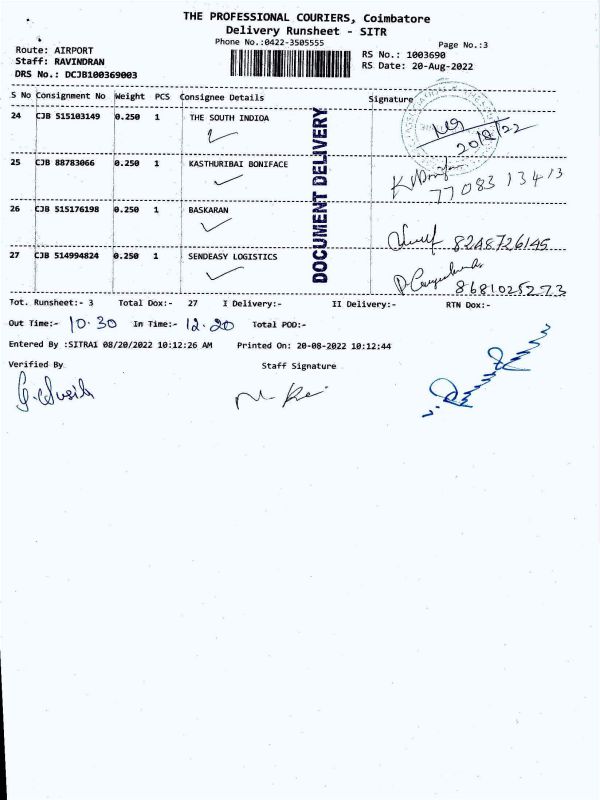 THE PROFESSIONAL COURIERS, Coimbatore
Delivery Runsheet - SITR
Phone No.:0422-3505555
Page No.:3
Route: AIRPORT
RS No.: 1003690
Staff: RAVINDRAN
RS Date: 20-Aug-2022
DRS No.: DCJB100369003
S No Consignment No Weight PCS Consignee Details Signature
24 CJB 515103149 0.250 1 THE SOUTH INDIOA
20/8/22
25 CJB 88783066 0.250 1 KASTHURIBAI BONIFACE
77083 13413
26 CJB 515176198 0.250 1 BASKARAN
8248726145
27 CJB 514994824 0.250 1 SENDEASY LOGISTICS
8681025273
DOCUMENT DELIVERY
Tot. Runsheet:- 3 Total Dox:- 27 I Delivery:- II Delivery:- RTN Dox:-
Out Time:- 10.30 In Time:- 12.20 Total POD:-
Entered By :SITRA1 08/20/2022 10:12:26 AM Printed On: 20-08-2022 10:12:44
Verified By Staff Signature